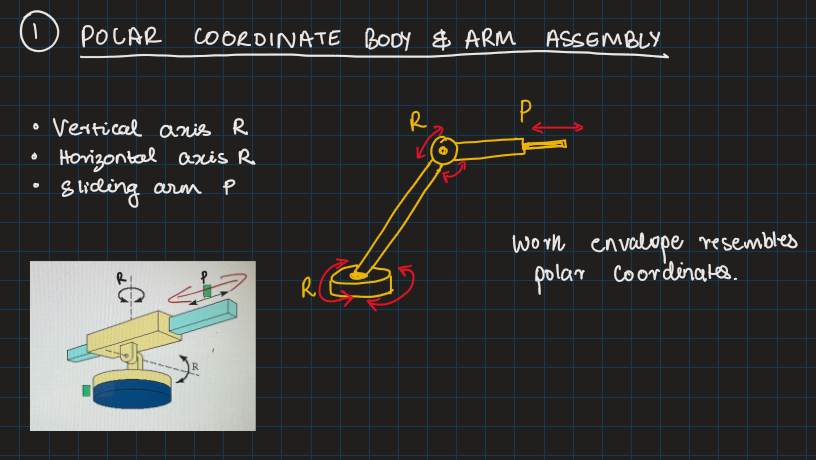 1 POLAR COORDINATE BODY & ARM ASSEMBLY
• Vertical axis R
• Horizontal axis R
• Sliding arm P
R
P
R
Work envalope resembles
polar coordinates.
R
P
R